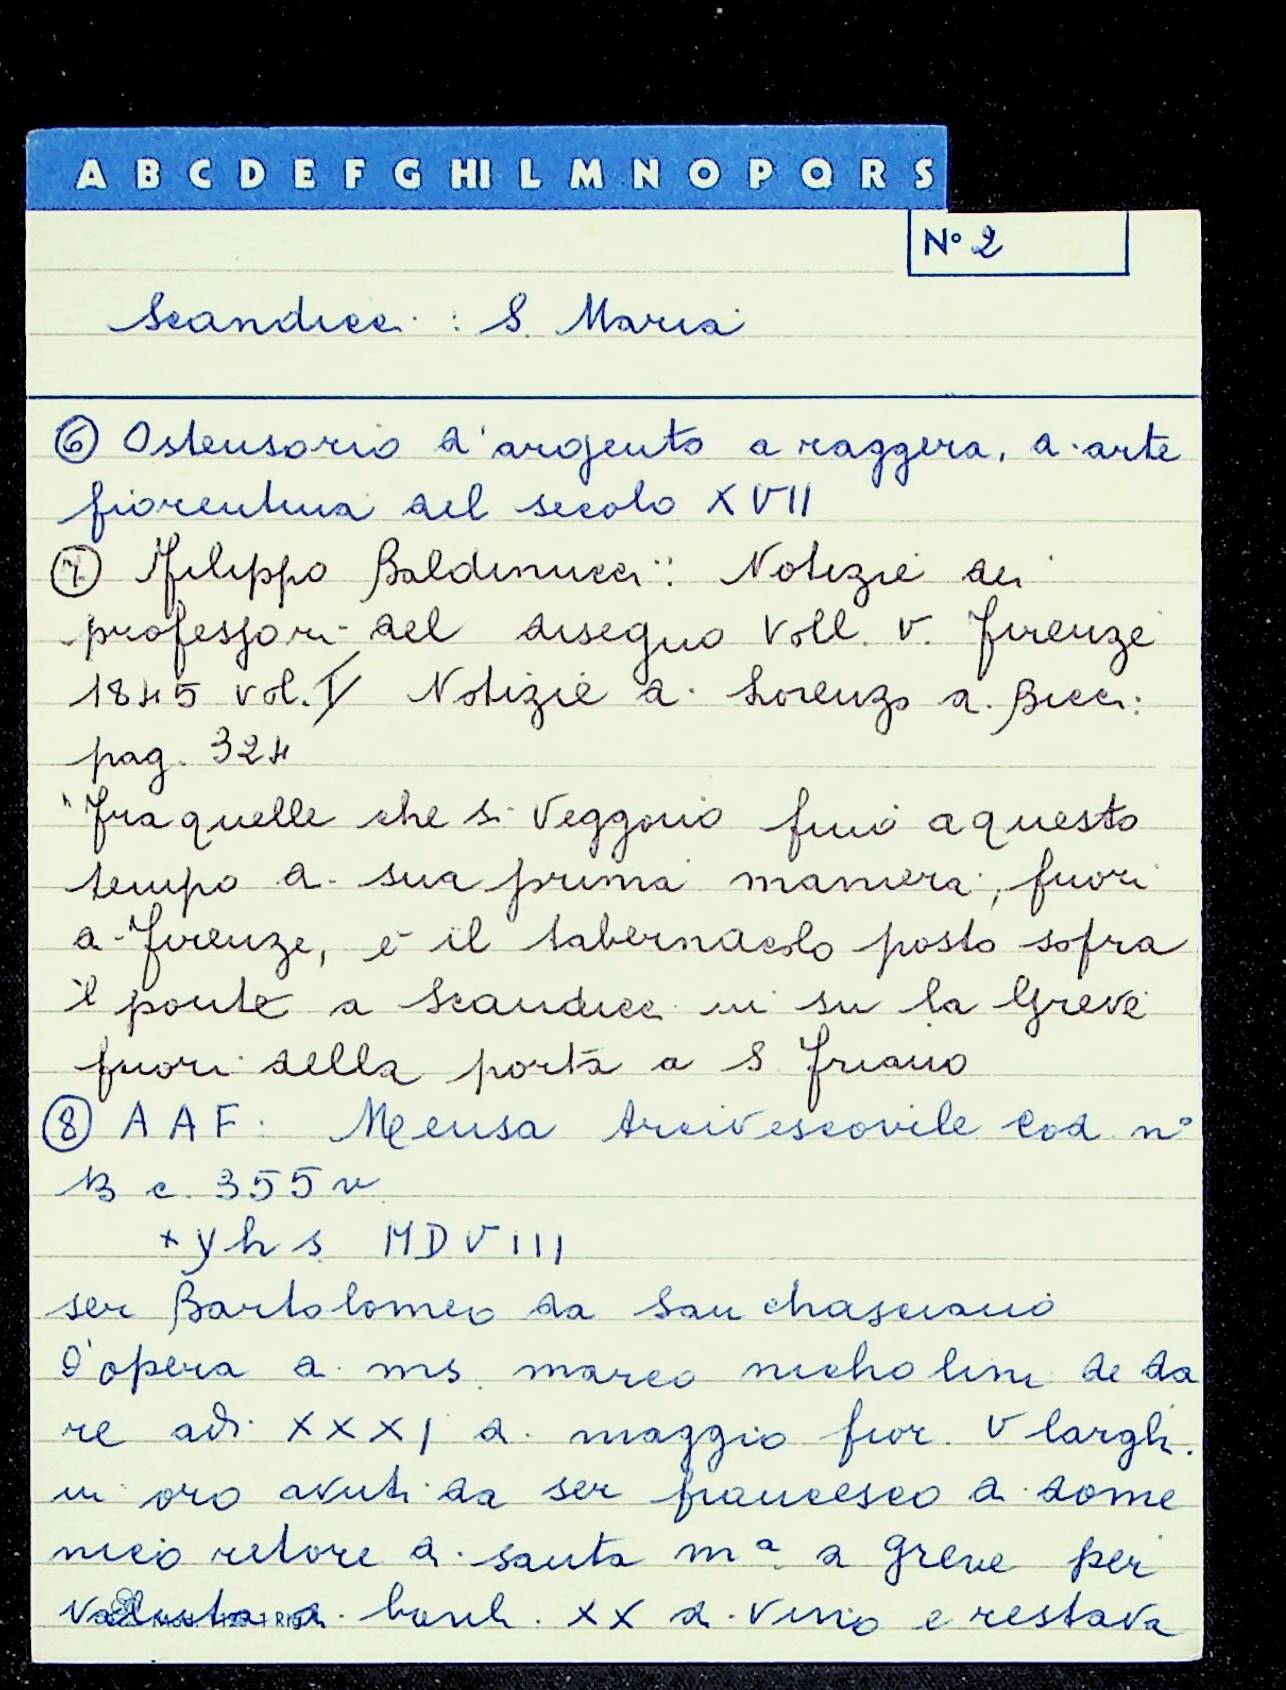 A B C D E F G HI L M N O P Q R S
N° 2
Scandicci : S. Maria
⑥ Ostensorio d'argento a raggera, di arte
fiorentina del secolo XVII
⑦ Filippo Baldinucci: Notizie dei
professori del disegno Voll. V. Firenze
1845 vol. I Notizie di Lorenzo di Bicci:
pag. 324
"Fra quelle che si veggono fino a questo
tempo di sua prima maniera, fuori
di Firenze, è il tabernacolo posto sopra
il ponte a Scandicci in su la Greve
fuori della porta a S Friano
⑧ A A F: Mensa Arcivescovile Cod n°
13 c. 355 v
+ y h s MDVIII
ser Bartolomeo da San chasciano
d'opera di ms. marco nicholini de da
re adi XXXI di maggio fior. V largh.
in oro avuti da ser francesco di dome
nicio retore di santa mª a greve per
di baril. XX di vino e restava